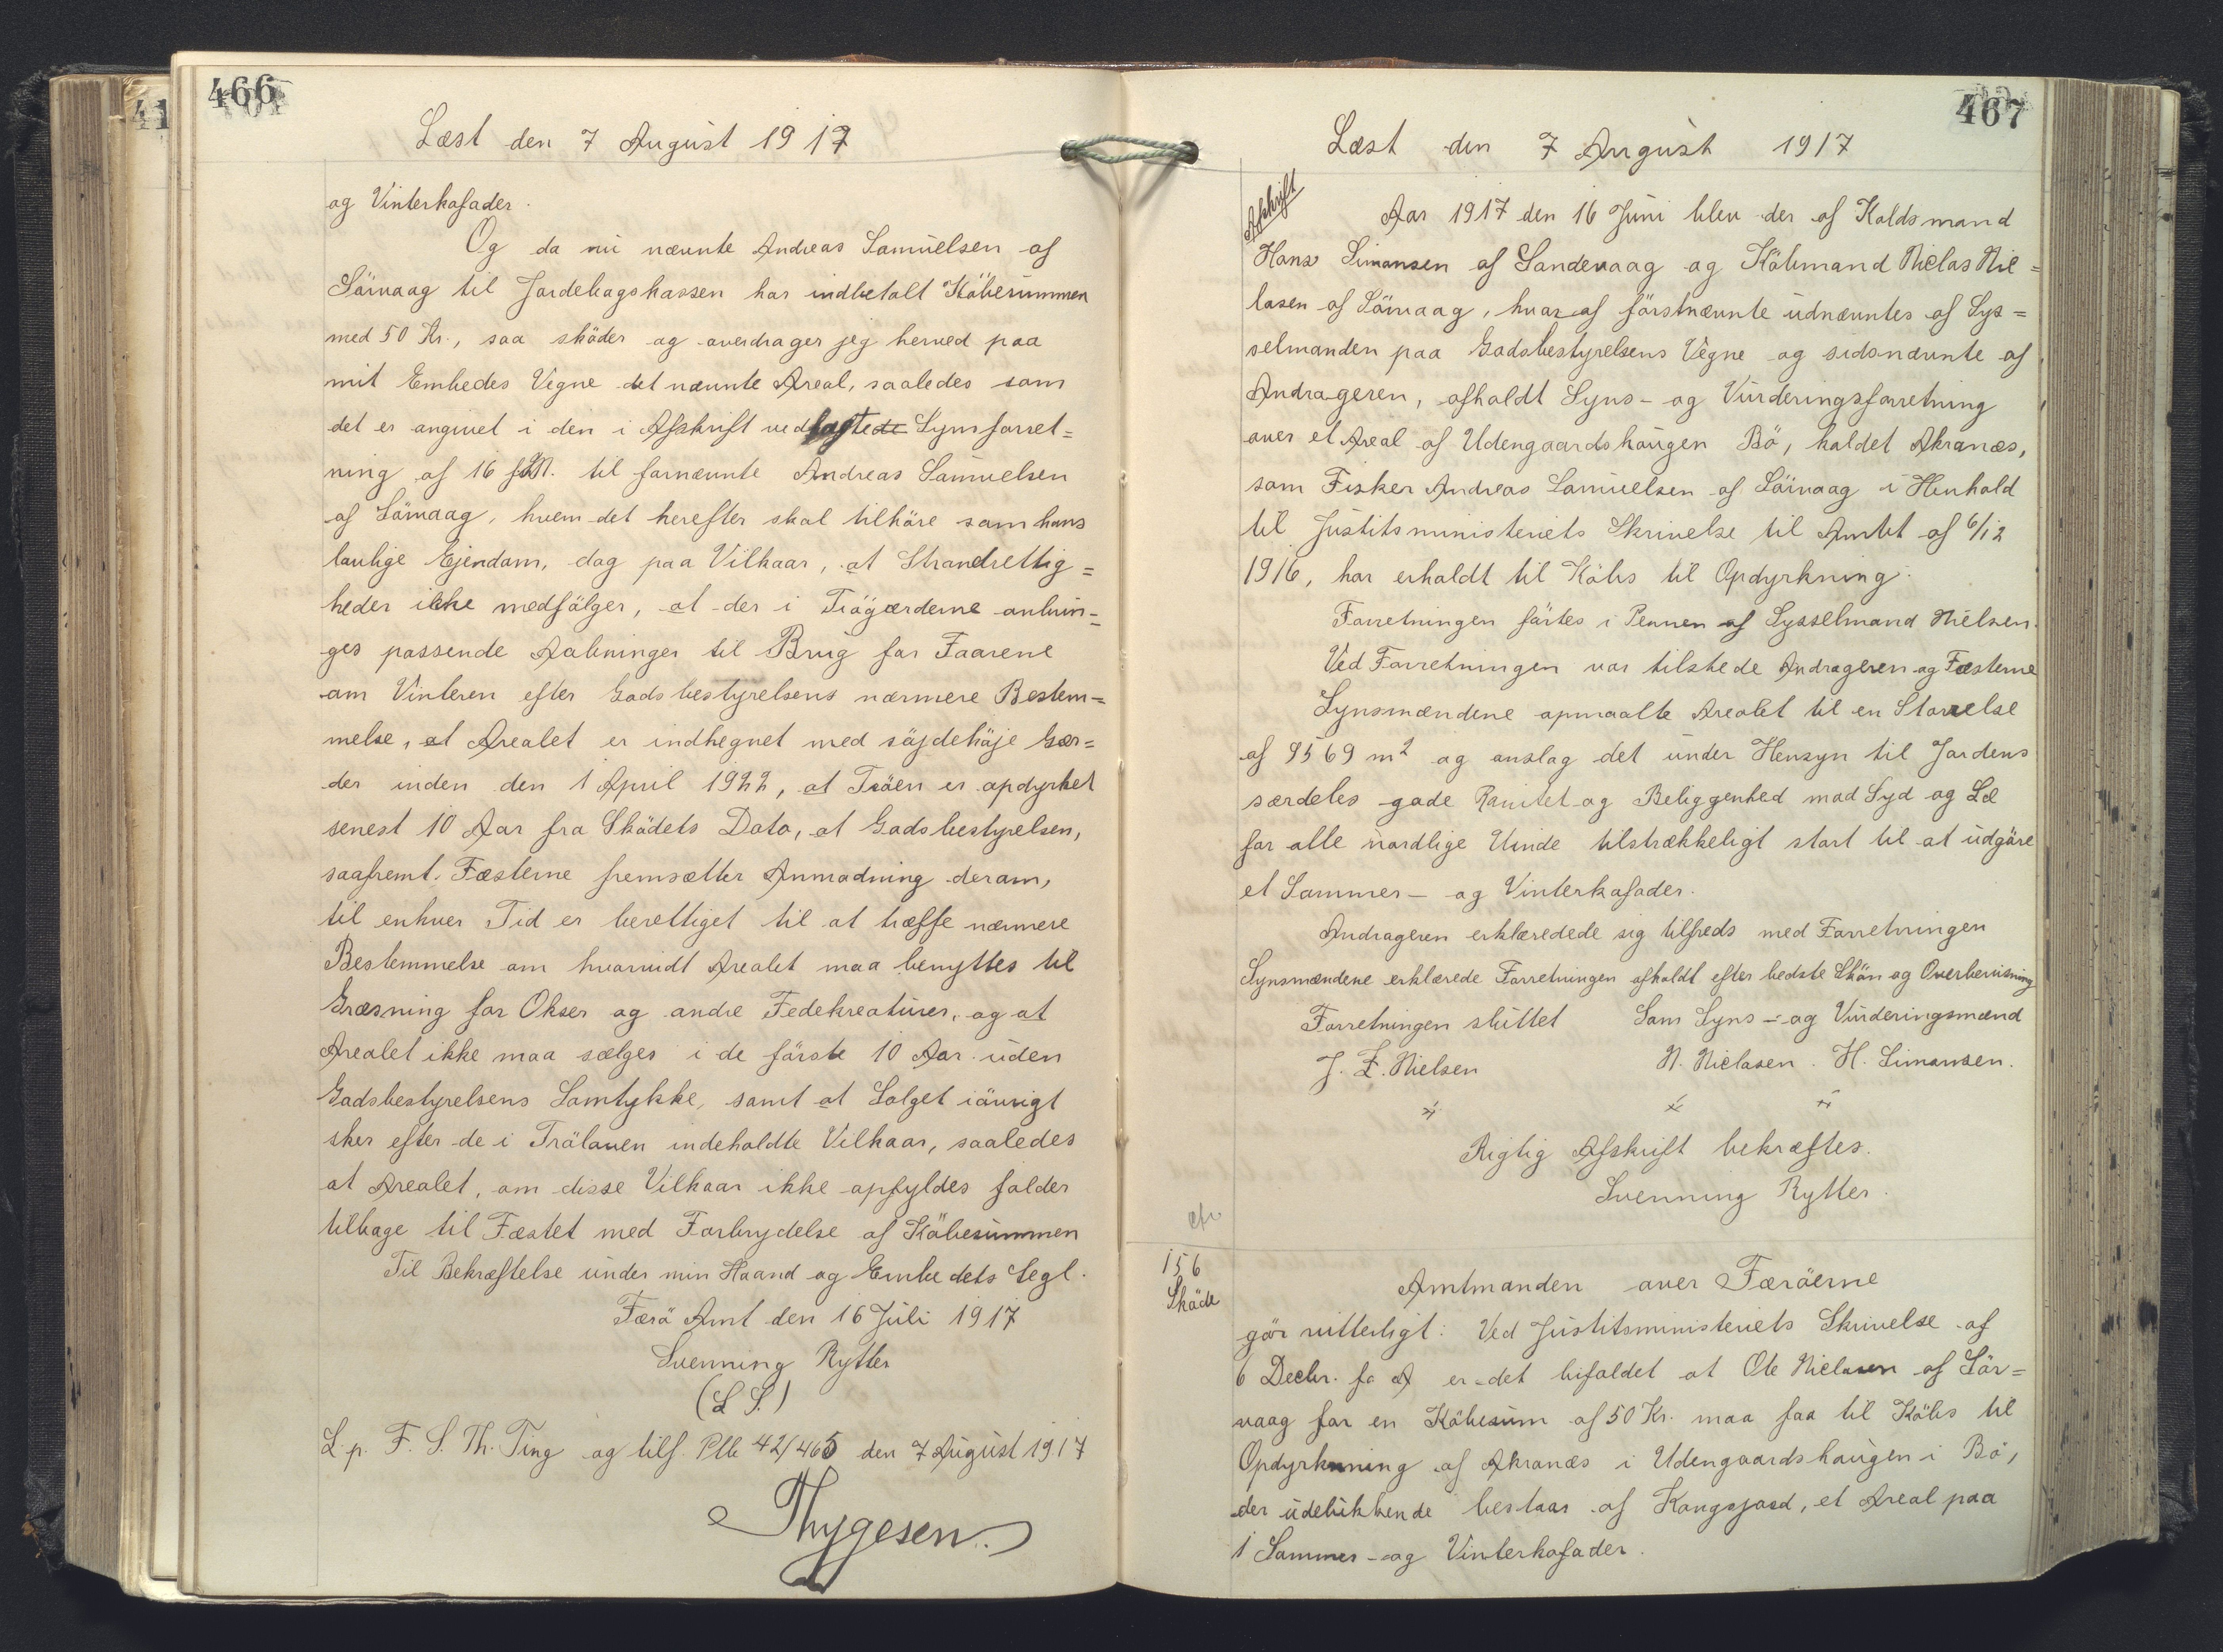 466
Læst den 7 August 1917
og Vinterkofoder.
Og da nu nævnte Andreas Samuelsen af
Sörvaag til Jordebogskassen har indbetalt Köbesummen
med 50 Kr., saa sköder og overdrager jeg herved paa
mit Embedes Vegne det nævnte Areal, saaledes som
det er angivet i den i Afskrift vedhæftede Synsforret=
ning af 16 f.M. til fornævnte Andreas Samuelsen
af Sörvaag, hvem det herefter skal tilhöre som hans
lovlige Ejendom, dog paa Vilkaar, at Strandrettig=
heder ikke medfölger, at der i Trögærderne anbrin=
ges passende Aabninger til Brug for Faarene
om Vinteren efter Godsbestyrelsens nærmere Bestem=
melse, at Arealet er indhegnet med söjdehöje Gær=
der inden den 1 April 1922, at Tröen er opdyrket
senest 10 Aar fra Sködets Dato, at Godsbestyrelsen,
saafremt Fæsterne fremsætter Anmodning derom,
til enhver Tid er berettiget til at træffe nærmere
Bestemmelse om hvorvidt Arealet maa benyttes til
Græsning for Okser og andre Fedekreaturer, og at
Arealet ikke maa sælges i de förste 10 Aar uden
Godsbestyrelsens Samtykke, samt at Salget iövrigt
sker efter de i Trölöven indeholdte Vilkaar, saaledes
at Arealet, om disse Vilkaar ikke opfyldes falder
tilbage til Fæstet med Forbrydelse af Köbesummen
Til Bekræftelse under min Haand og Embedets Segl.
Færö Amt den 16 Juli 1917
Svenning Rytter
(L S.)
L. p. F. S. Th. Ting og tilf. Plb 42/465 den 7 August 1917
Thygesen.
467
Læst den 7 August 1917
Afskrift
Aar 1917 den 16 Juni blev der af Koldsmand
Hans Simonsen af Sandevaag og Köbmand Niclas Nic=
lasen af Sörvaag, hvoraf förstnævnte udnævntes af Sys=
selmanden paa Godsbestyrelsens Vegne og sidsnævnte af
Andrageren, afholdt Syns- og Vurderingsforretning
over et Areal af Udengaardshaugen Bö, kaldet Akranæs,
som Fisker Andreas Samuelsen af Sörvaag i Henhold
til Justitsministeriets Skrivelse til Amtet af 6/12
1916, har erholdt til Köbs til Opdyrkning.
Forretningen förtes i Pennen af Sysselmand Nielsen.
Ved Forretningen var tilstede Andrageren og Fæsterne
Synsmændene opmaalte Arealet til en Storrelse
af 9569 m2 og anslog det under Hensyn til Jordens
særdeles gode Bonitet og Beliggenhed mod Syd og Læ
for alle nordlige Vinde tilstrækkeligt stort til at udgöre
et Sommer- og Vinterkofoder.
Andrageren erklæredede sig tilfreds med Forretningen
Synsmændene erklærede Forretningen afholdt efter bedste Skön og Overbevisning
Forretningen sluttet Som Syns- og Vurderingsmænd
J. F. Nielsen N. Niclasen. H. Simonsen.
Rigtig Afskrift bekræftes.
Svenning Rytter.
cfr
156
Sköde
Amtmanden over Færöerne
gör vitterligt: Ved Justitsministeriets Skrivelse af
6 Decbr. f. A er det bifaldet at Ole Niclasen af Sör=
vaag for en Köbesum af 50 Kr. maa faa til Köbs til
Opdyrkning af Akranæs i Udengaardshaugen i Bö,
der udelukkende bestaar af Kongsjord, et Areal paa
1 Sommer- og Vinterkofoder.